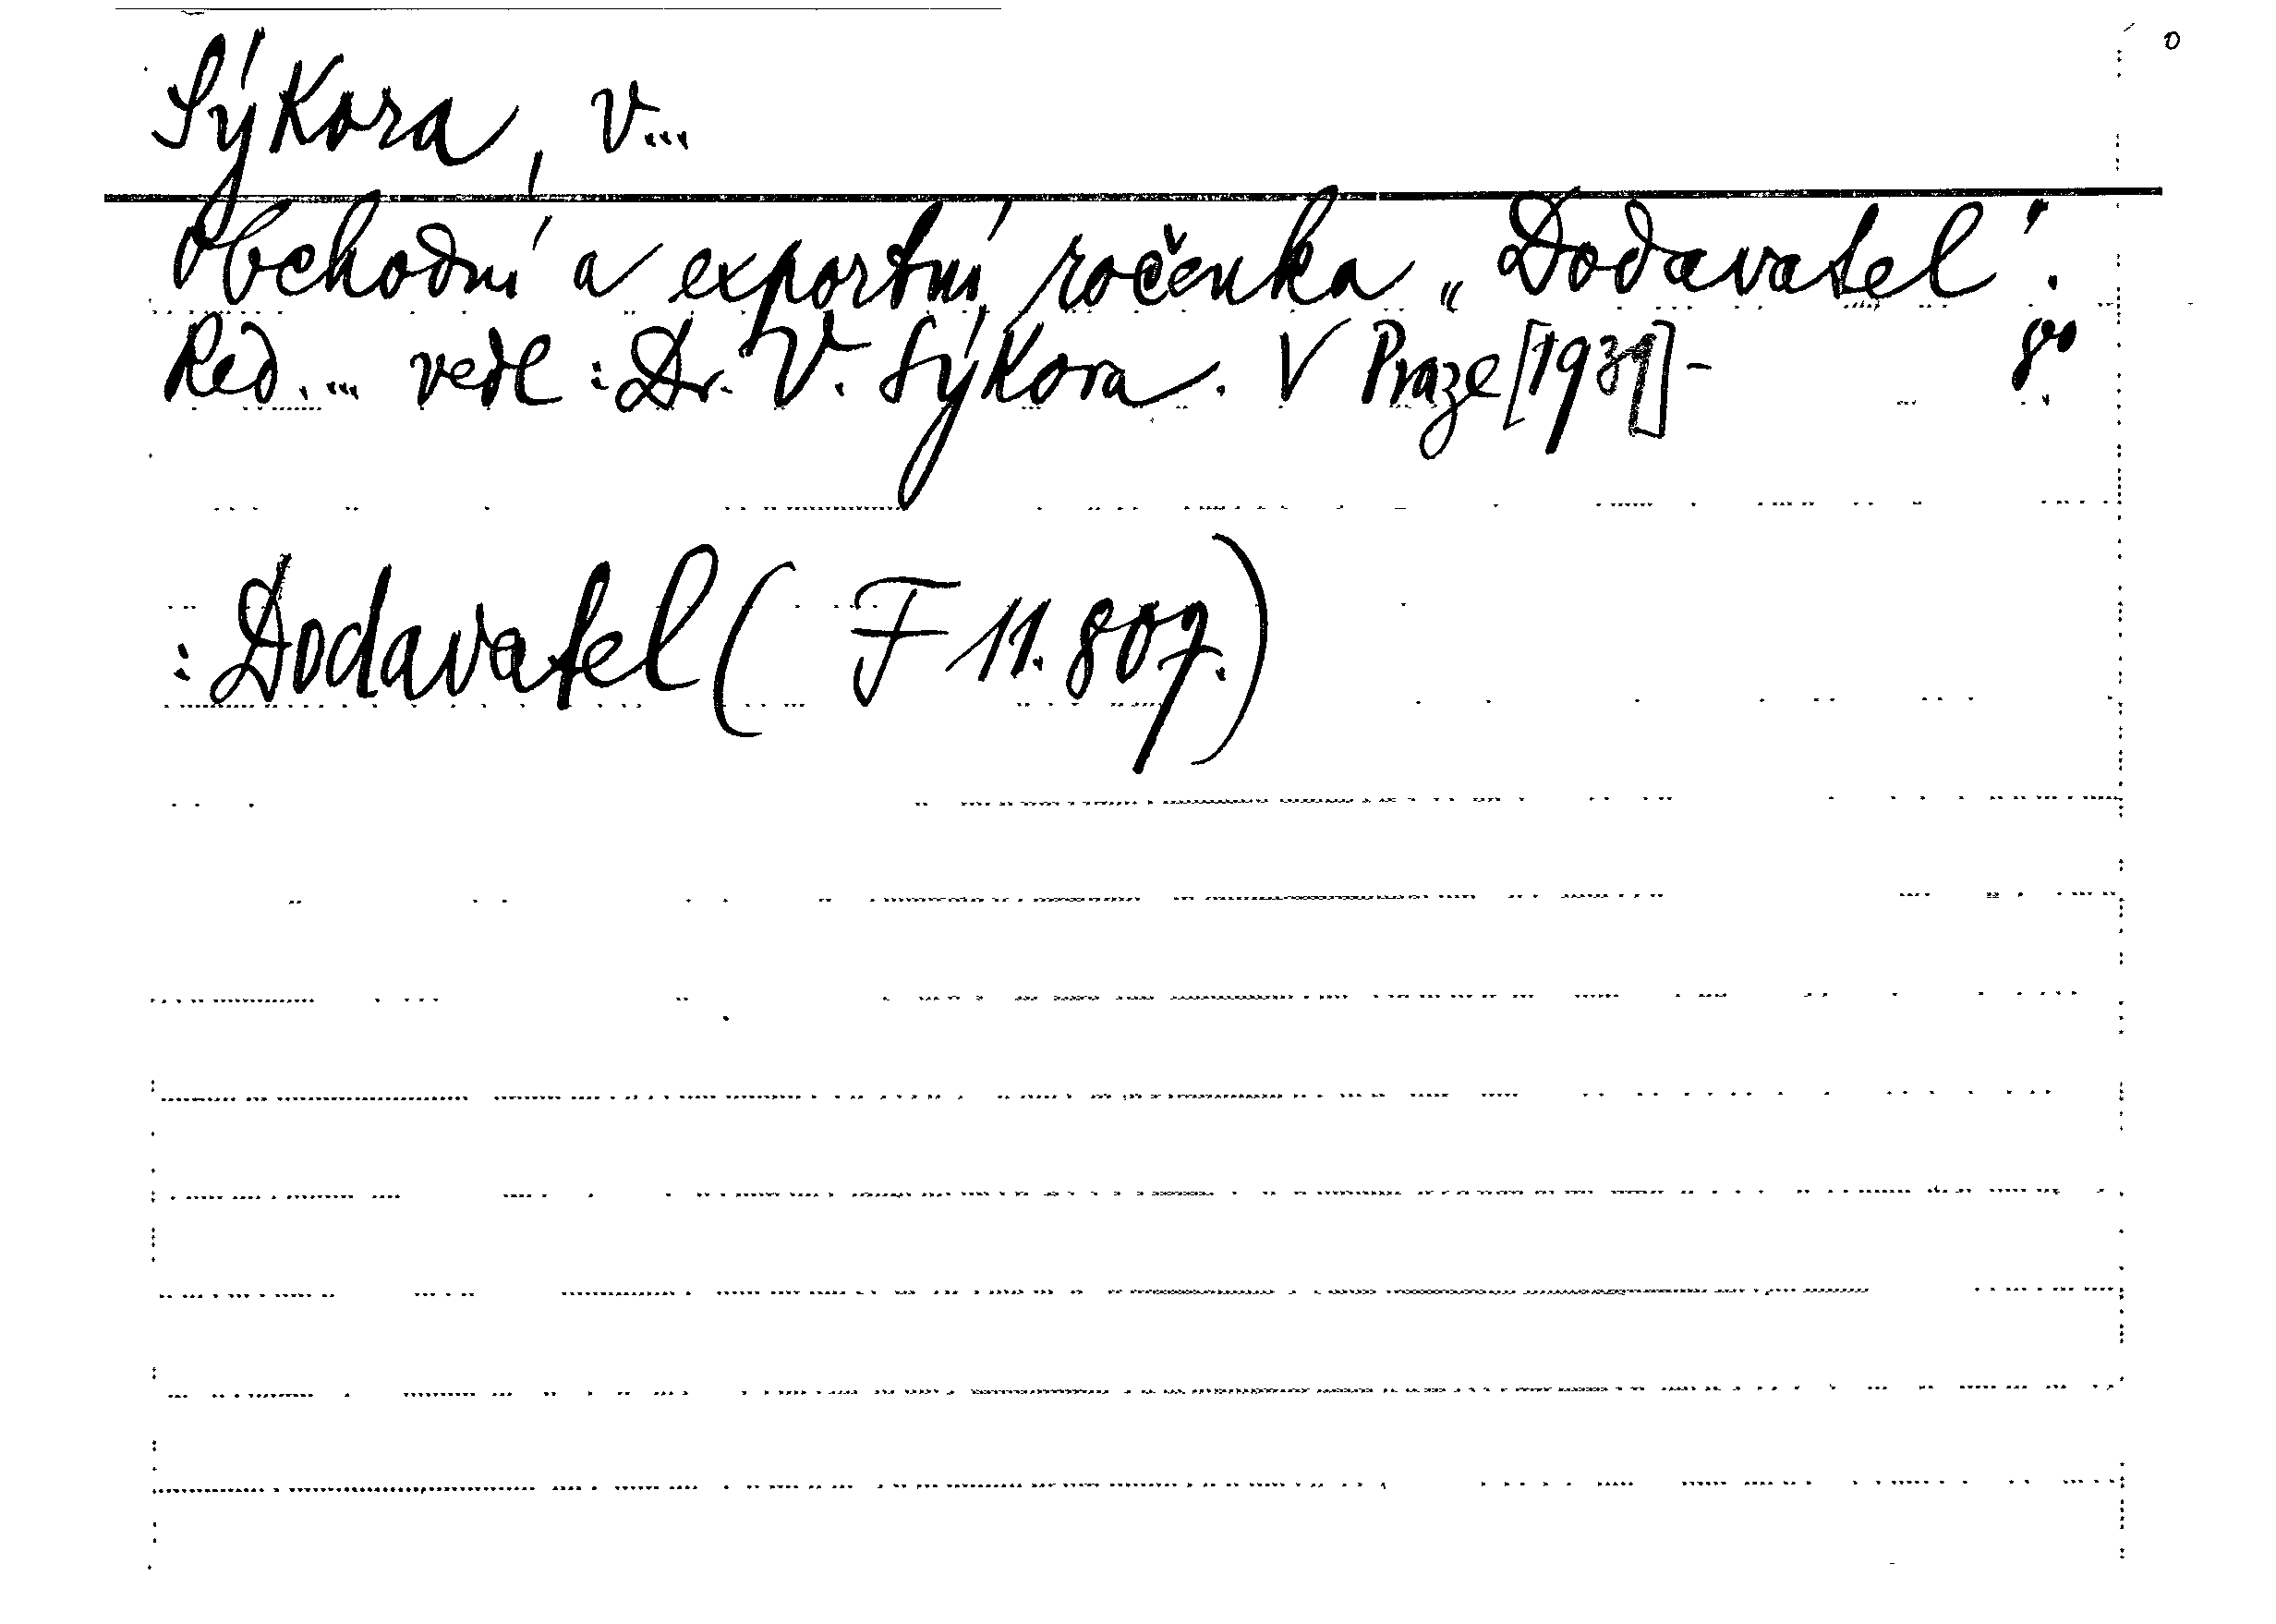 Sýkora, V...
Obchodní a exportní ročenka „Dodavatel".
Red. ... vedl: Dr. V. Sýkora. V Praze [1939]- 8°
: Dodavatel ( F 11.807.)